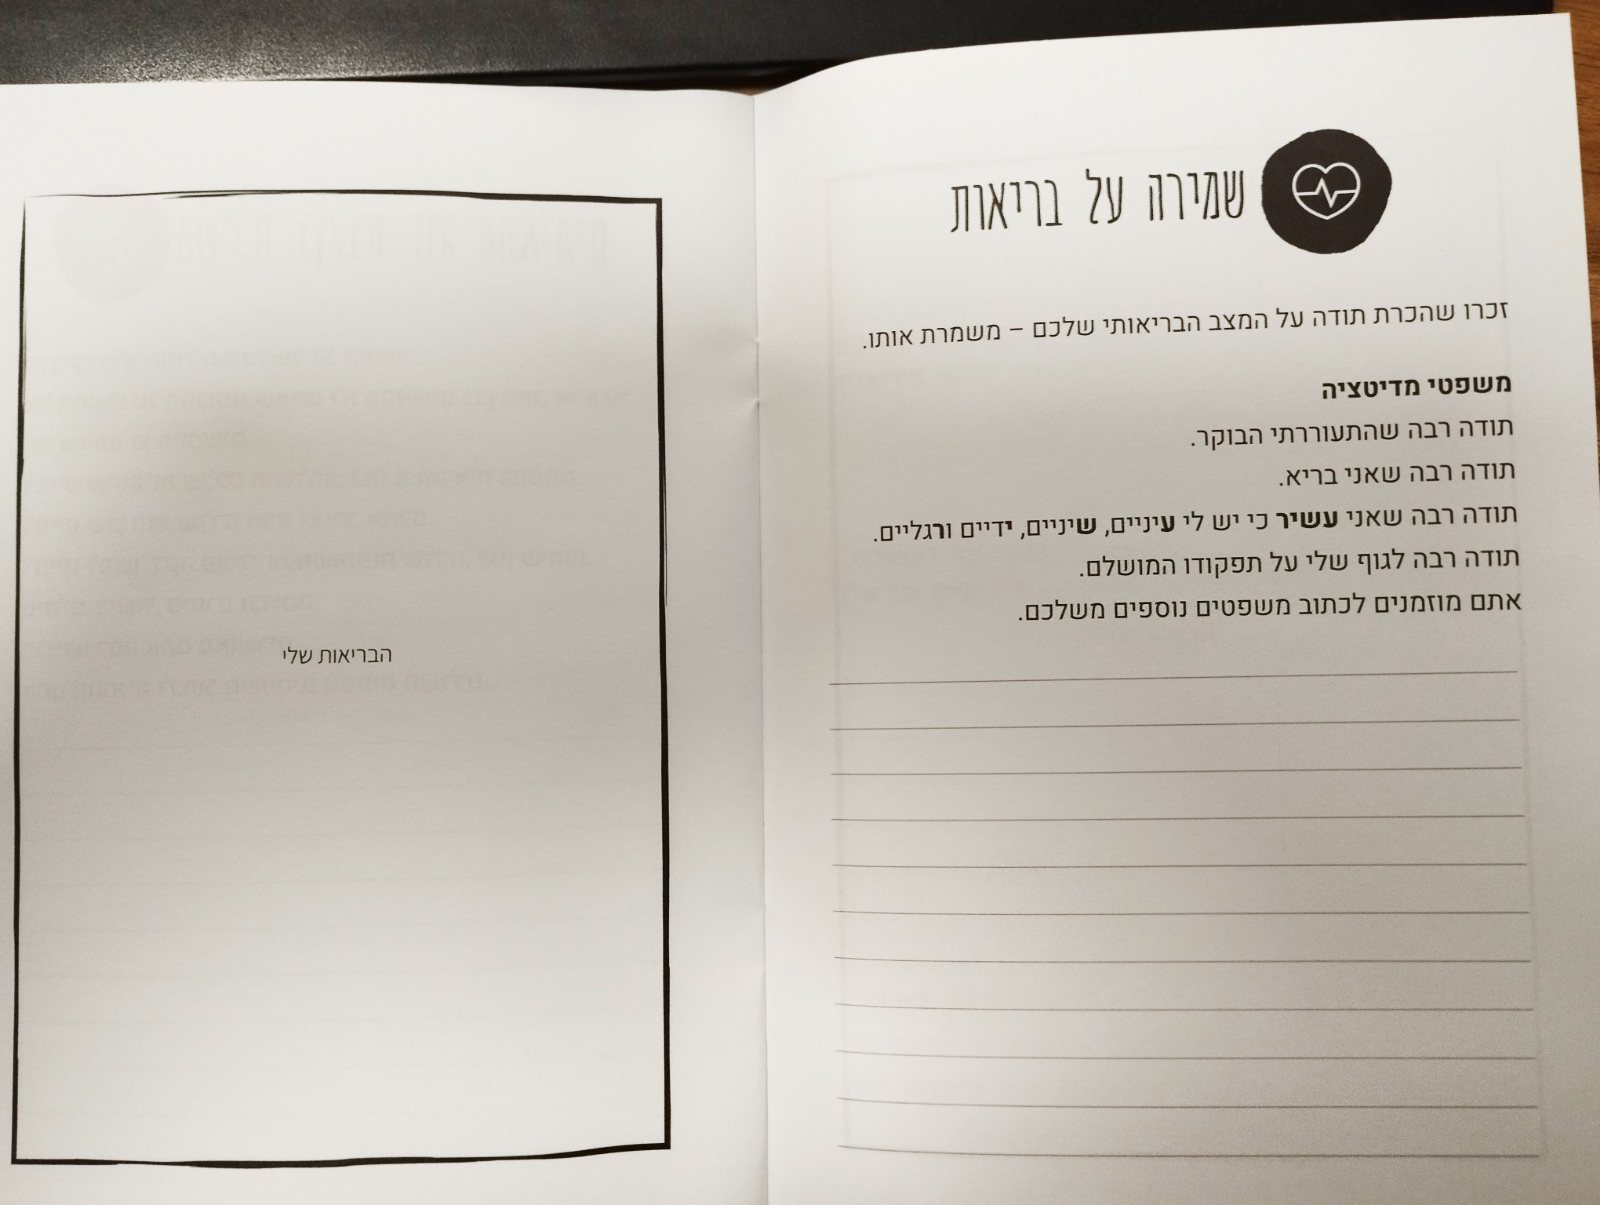 שמירה על בריאות
זכרו שהכרת תודה על המצב הבריאותי שלכם – משמרת אותו.
משפטי מדיטציה
תודה רבה שהתעוררתי הבוקר.
תודה רבה שאני בריא.
תודה רבה שאני עשיר כי יש לי עיניים, שיניים, ידיים ורגליים.
תודה רבה לגוף שלי על תפקודו המושלם.
אתם מוזמנים לכתוב משפטים נוספים משלכם.
הבריאות שלי